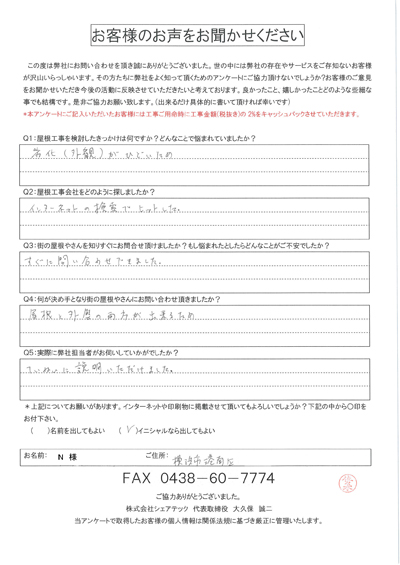 お客様のお声をお聞かせください
この度は弊社にお問い合わせを頂き誠にありがとうございました。世の中には弊社の存在やサービスをご存知ないお客様
が沢山いらっしゃいます。その方たちに弊社をよく知って頂くためのアンケートにご協力頂けないでしょうか?お客様のご意見
をお聞かせいただき今後の活動に反映させていただきたいと考えております。良かったこと、嬉しかったことどのような些細な
事でも結構です。是非ご協力お願い致します。(出来るだけ具体的に書いて頂ければ幸いです)
*本アンケートにご記入いただいたお客様には工事ご用命時に工事金額(税抜き)の2%をキャッシュバックさせていただきます。
Q1:屋根工事を検討したきっかけは何ですか?どんなことで悩まれていましたか?
劣化(外観)がひどいため
Q2:屋根工事会社をどのように探しましたか?
インターネットの検索でヒットした。
Q3:街の屋根やさんを知りすぐにお問合せ頂けましたか?もし悩まれたとしたらどんなことがご不安でしたか?
すぐに問い合わせできました。
Q4:何が決め手となり街の屋根やさんにお問い合わせ頂きましたか?
屋根と外壁の両方が出来るため
Q5:実際に弊社担当者がお伺いしていかがでしたか?
ていねいに説明いただけました。
*上記についてお願いがあります。インターネットや印刷物に掲載させて頂いてもよろしいでしょうか?下記の中から〇印を
お付下さい。
( )名前を出してもよい (✓)イニシャルなら出してもよい
お名前: N 様 ご住所: 横浜市港南区
FAX 0438-60-7774
ご協力ありがとうございました。
株式会社シェアテック 代表取締役 大久保 誠二
当アンケートで取得したお客様の個人情報は関係法規に基づき厳正に管理いたします。